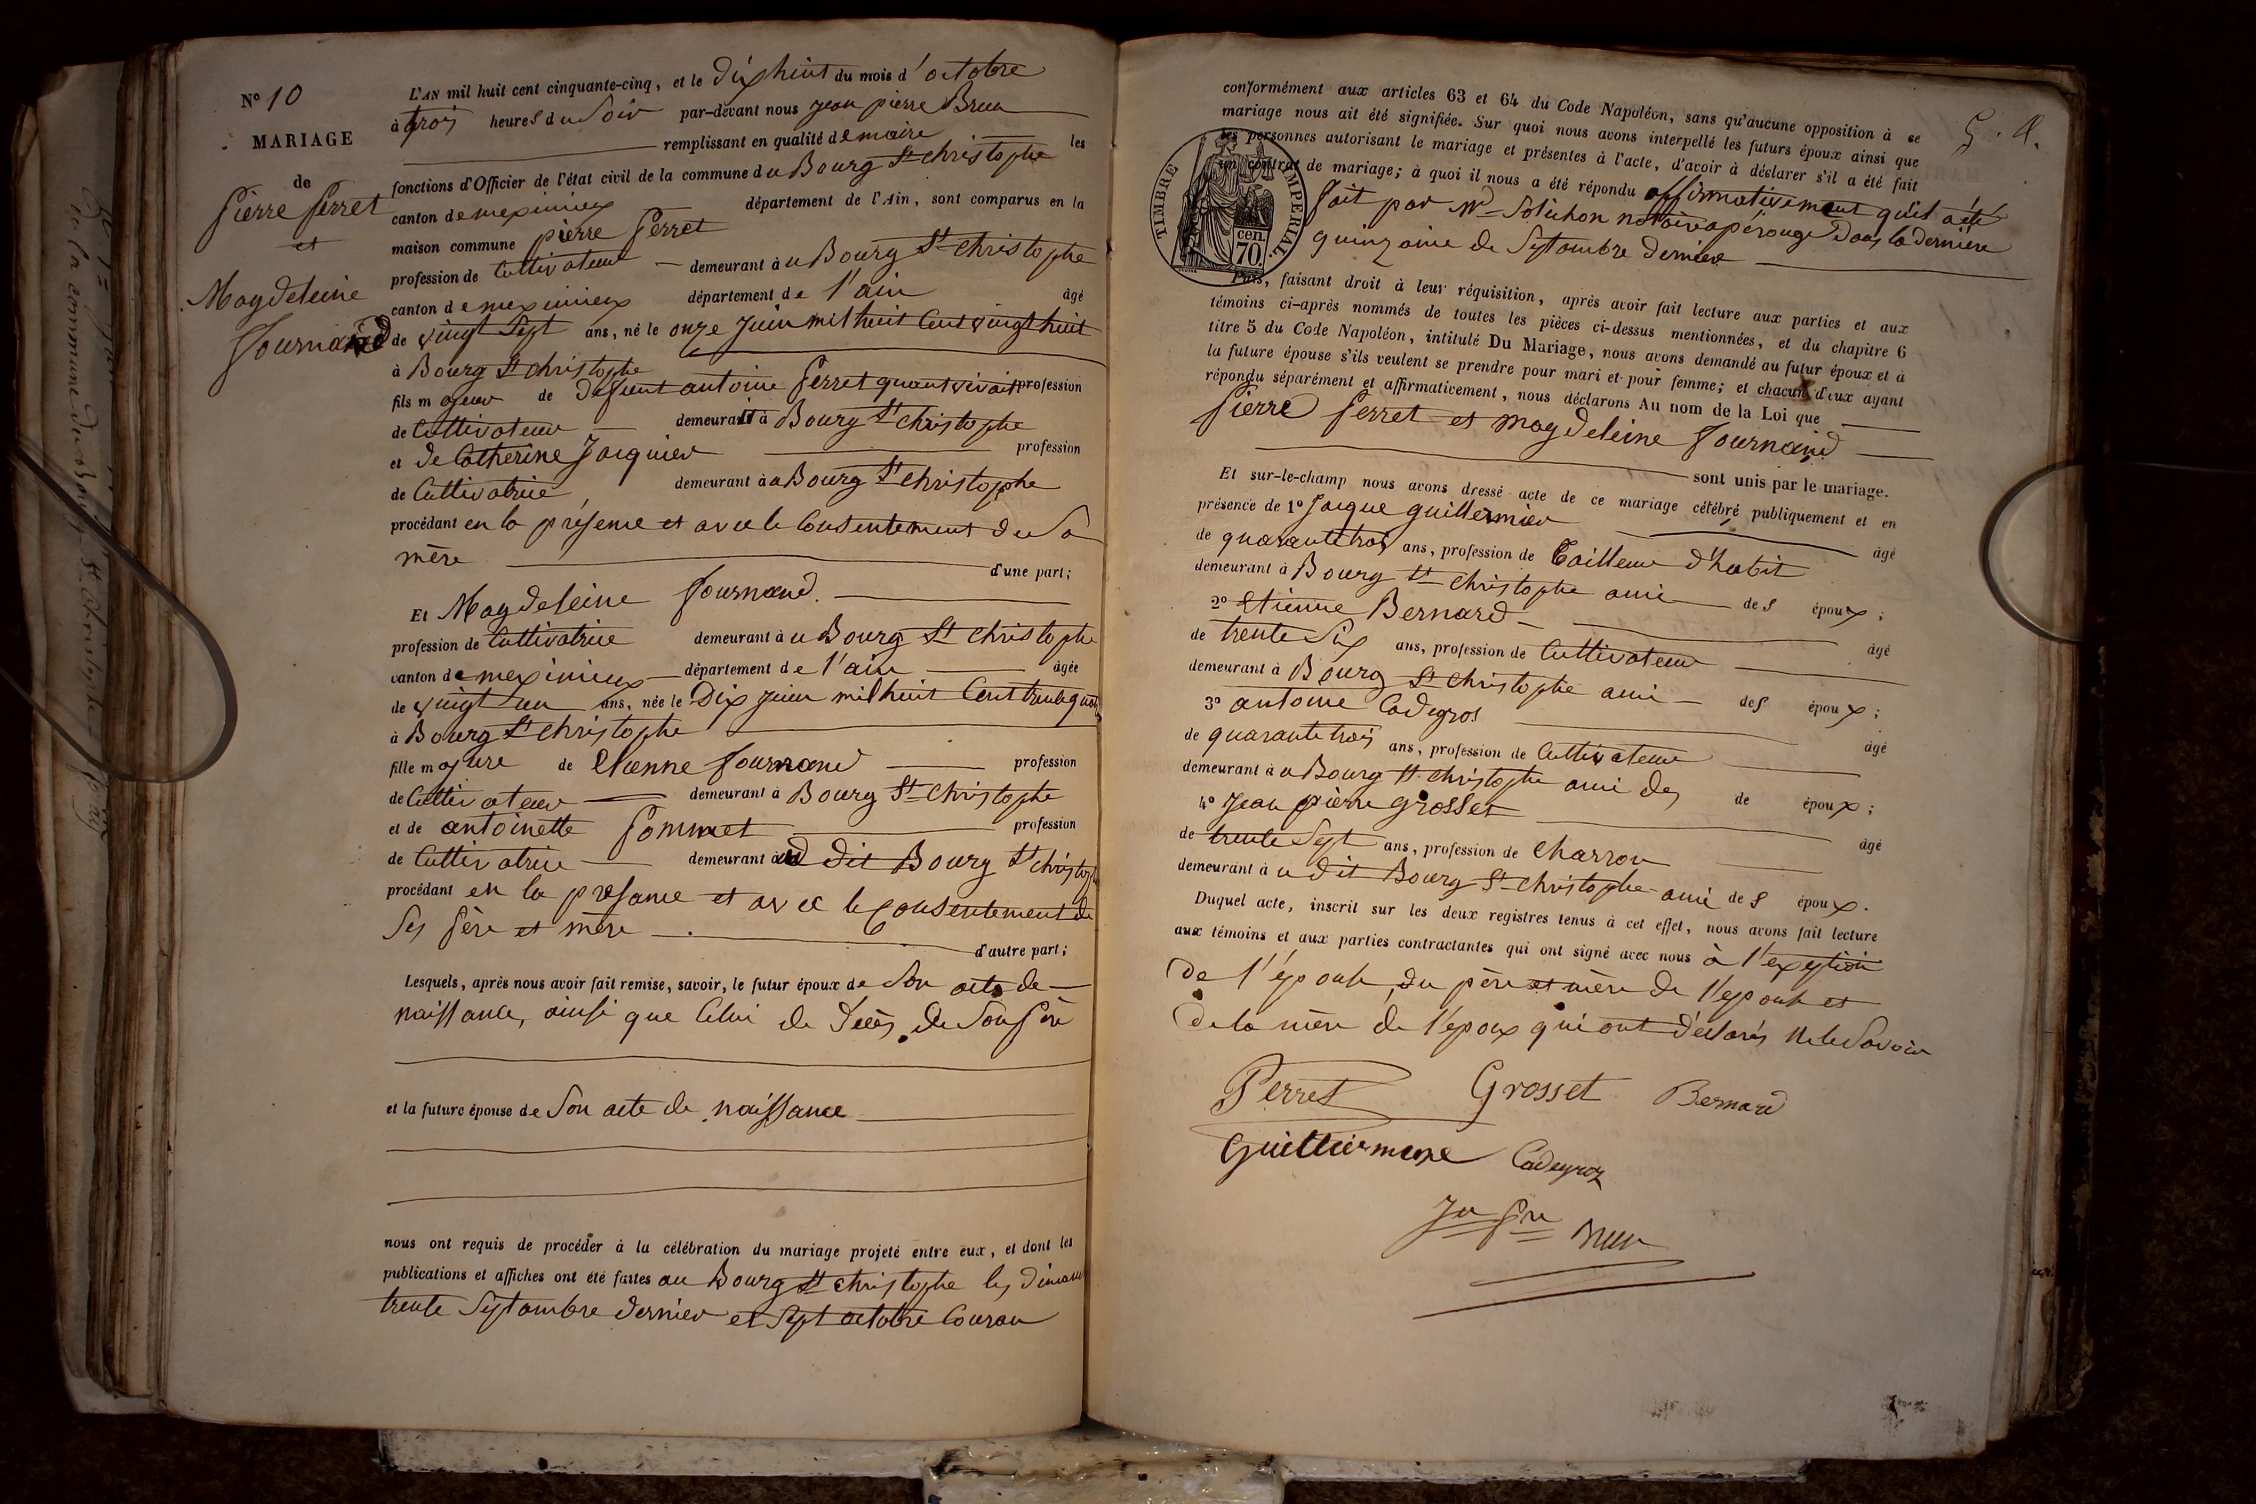 N° 10
MARIAGE
de
Pierre Perret
et
Magdeleine
Fournand
L'AN mil huit cent cinquante-cinq, et le dix huit du mois d'octobre
à trois heures du Soir par-devant nous jean pierre Brun
remplissant en qualité de maire les
fonctions d'Officier de l'état civil de la commune du Bourg St christophe
canton de meximieux département de l'Ain, sont comparus en la
maison commune pierre Perret
profession de Cultivateur demeurant à u Bourg St christophe
canton de meximieux département de l'ain âgé
de vingt Sept ans, né le onze juin mil huit Cent vingt huit
à Bourg St christophe
fils majeur de defunt antoine Perret quant vivait profession
de Cultivateur demeurait à Bourg St christophe
et de Catherine Jacquier profession
de Cultivatrice demeurant à u Bourg St christophe
procédant en la présence et avec le Consentement de Sa
mère d'une part;
Et Magdeleine Fournand.
profession de Cultivatrice demeurant à u Bourg St christophe
canton de meximieux département de l'ain âgée
de vingt un ans, née le Dix juin mil huit Cent trente quatre
à Bourg St christophe
fille majure de Etienne Fournand profession
de Cultivateur demeurant à Bourg St christophe
et de antoinette Pommet profession
de Cultivatrice demeurant à u dit Bourg St christophe
procédant en la presance et avec le Consentement de
Ses père et mère d'autre part;
Lesquels, après nous avoir fait remise, savoir, le futur époux de Son acte de
naissance, ainsi que Celui de décès de Son père
et la future épouse de Son acte de naissance
nous ont requis de procéder à la célébration du mariage projeté entre eux, et dont les
publications et affiches ont été faites au Bourg St christophe les dimanche
trente Septambre dernier et Sept octobre Couran
conformément aux articles 63 et 64 du Code Napoléon, sans qu'aucune opposition à se
mariage nous ait été signifiée. Sur quoi nous avons interpellé les futurs époux ainsi que
les personnes autorisant le mariage et présentes à l'acte, d'avoir à déclarer s'il a été fait
un contrat de mariage; à quoi il nous a été répondu affirmativement qu'il a été
TIMBRE IMPERIAL.
cen.
70.
fait par Me Solichon notaire a pérouge dans la dernière
quinzaine de Septambre dernier
Puis, faisant droit à leur réquisition, après avoir fait lecture aux parties et aux
témoins ci-après nommés de toutes les pièces ci-dessus mentionnées, et du chapitre 6
titre 5 du Code Napoléon, intitulé Du Mariage, nous avons demandé au futur époux et à
la future épouse s'ils veulent se prendre pour mari et pour femme; et chacun d'eux ayant
répondu séparément et affirmativement, nous déclarons Au nom de la Loi que
Pierre Perret et magdeleine Fournand
sont unis par le mariage.
Et sur-le-champ nous avons dressé acte de ce mariage célébré publiquement et en
présence de 1° Jacque guillermier âgé
de quarante trois ans, profession de Tailleur d'habit
demeurant à Bourg St christophe ami des époux;
2° Etienne Bernard âgé
de trente Six ans, profession de Cultivateur
demeurant à Bourg St christophe ami des époux;
3° antoine Cadegros âgé
de quarante trois ans, profession de Cultivateur
demeurant à u Bourg St christophe ami des de époux;
4° jean pierre grosset âgé
de trente Sept ans, profession de Charron
demeurant à u dit Bourg St christophe ami des époux.
Duquel acte, inscrit sur les deux registres tenus à cet effet, nous avons fait lecture
aux témoins et aux parties contractantes qui ont signé avec nous à l'exeption
de l'épouse, du père et mère de l'épouse et
de la mère de l'époux qui ont déclarés ne le Savoir
Perret Grosset Bernard
Guilliermene Cadegroz
Jn Pre Brun